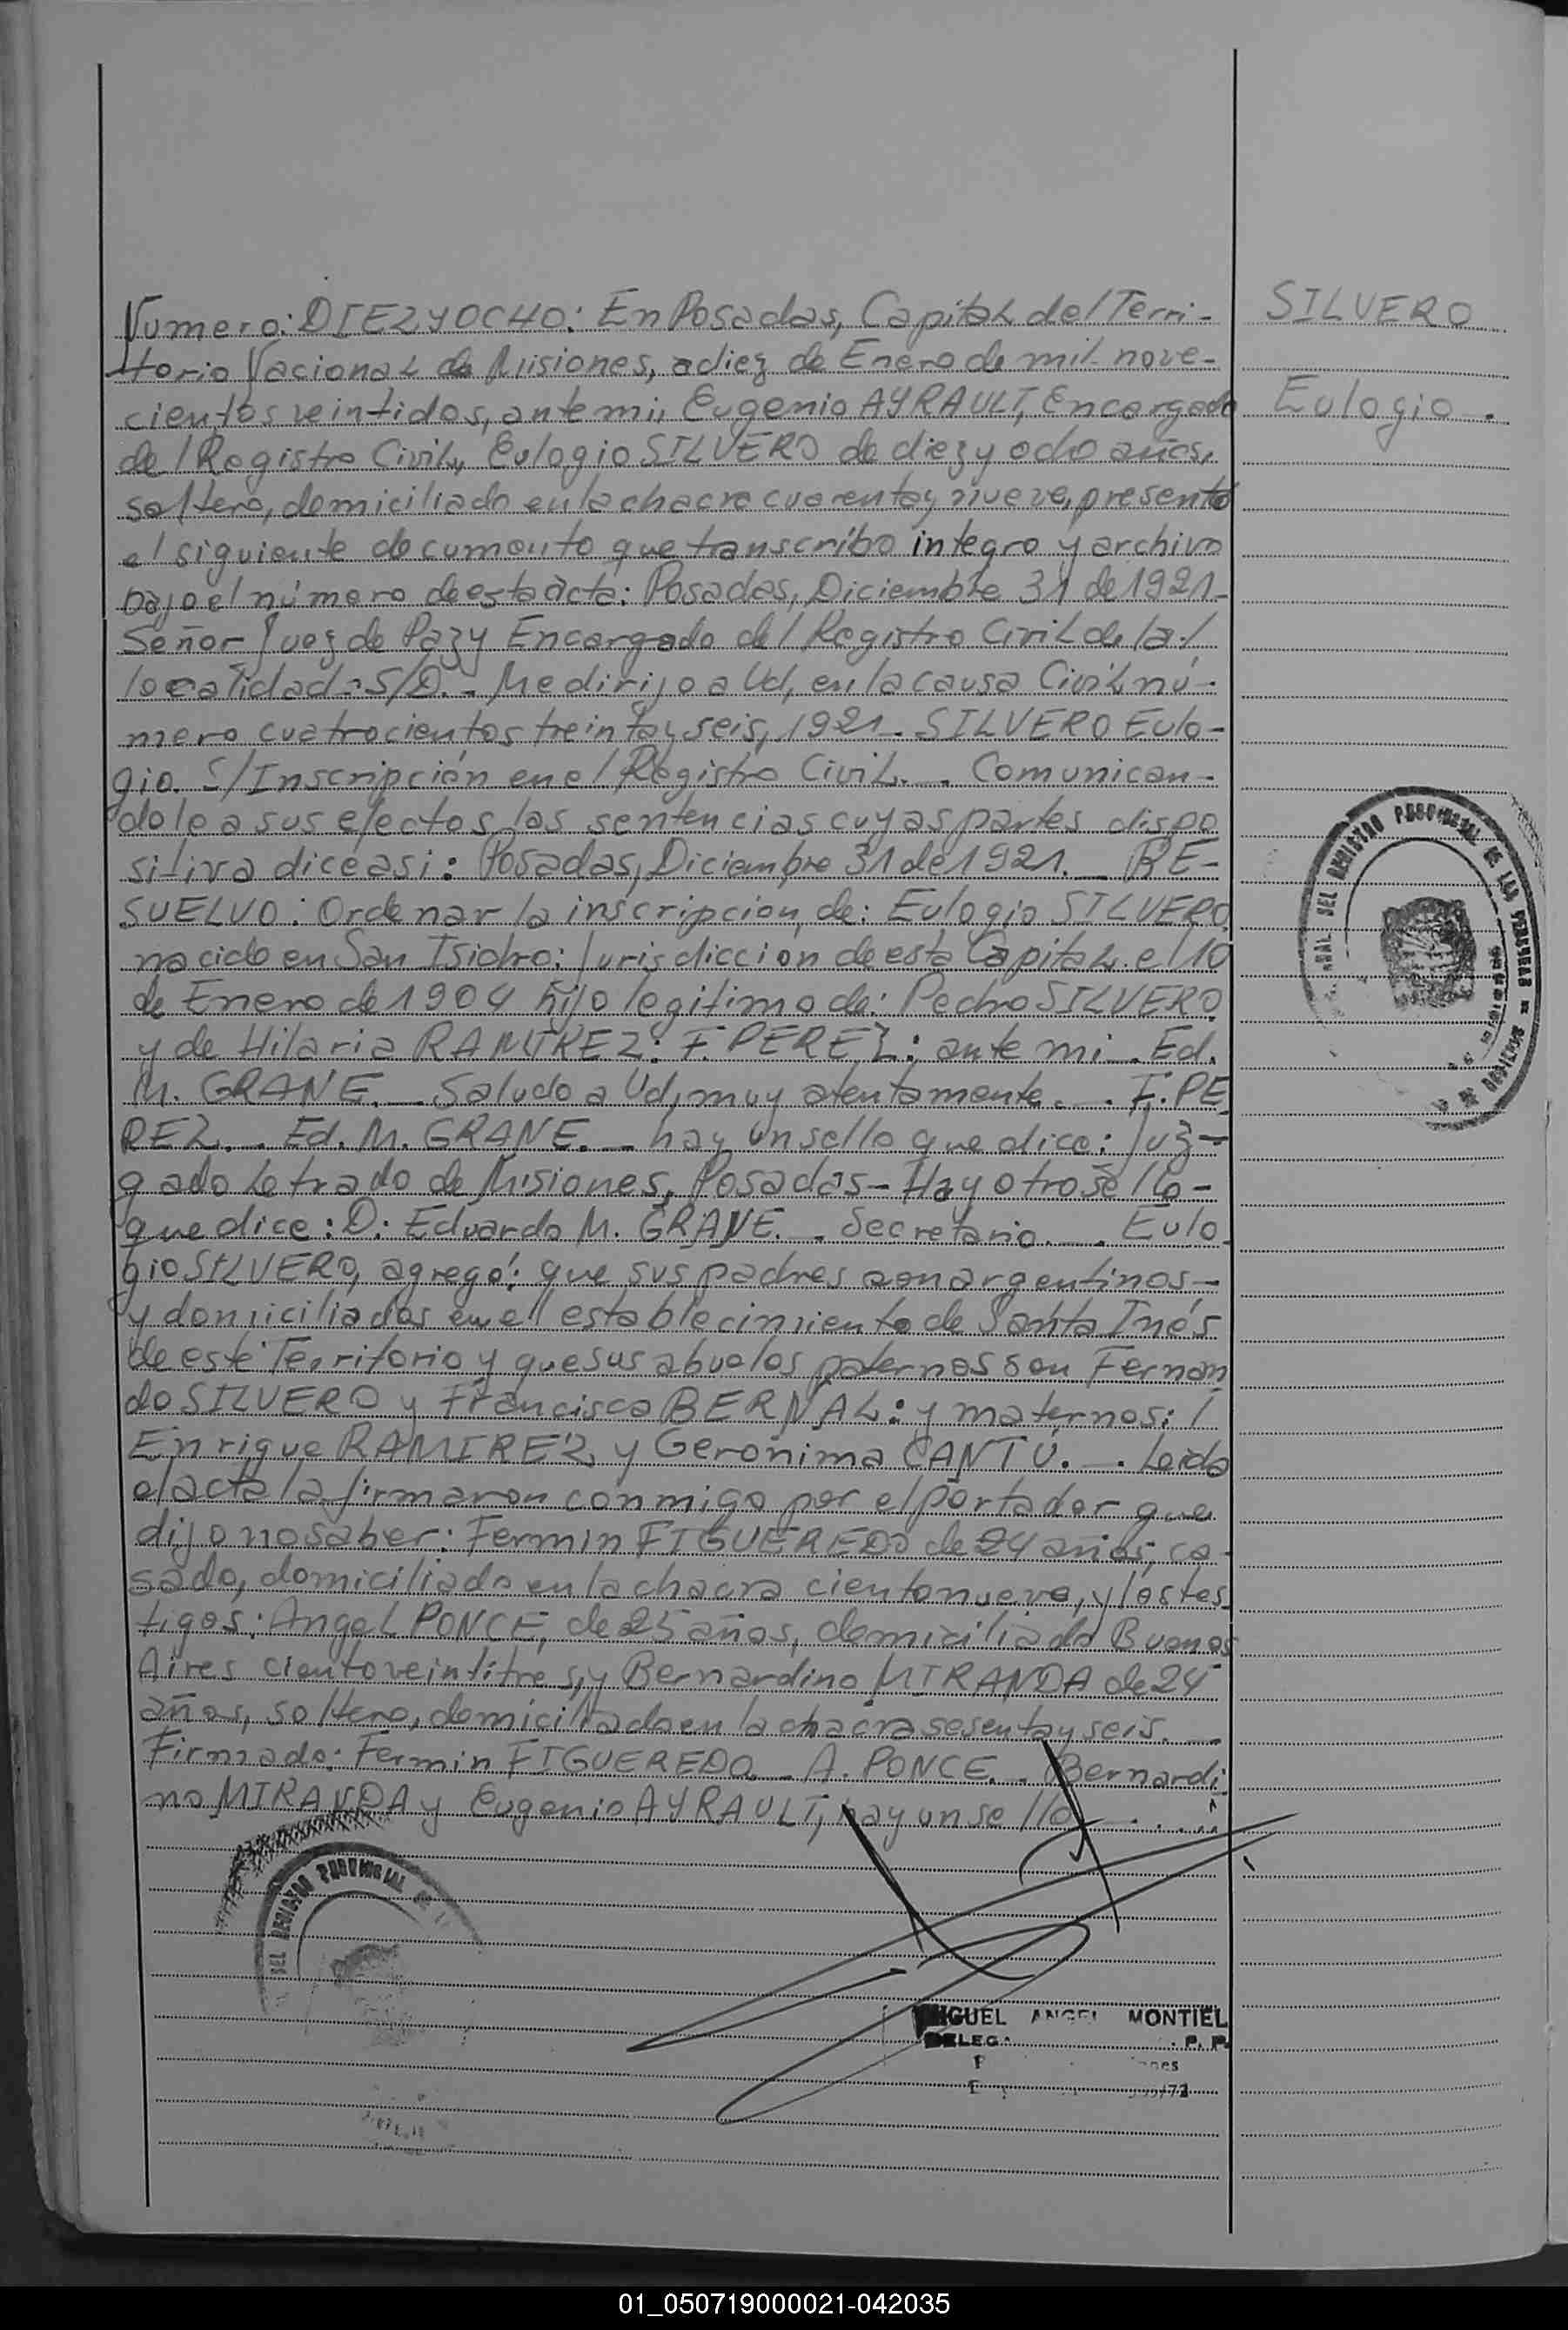 Numero: DIEZ Y OCHO: En Posadas, Capital del Terri-
torio Nacional de Misiones, a diez de Enero de mil nove-
cientos veintidos, ante mi, Eugenio AYRAULT, Encargado
del Registro Civil, Eulogio SILVERO de diez y ocho años,
soltero, domiciliado en la chacra cuarenta y nueve, presentó
el siguiente documento que transcribo integro y archivo
bajo el número de esta acta: Posadas, Diciembre 31 de 1921-
Señor Juez de Paz y Encargado del Registro Civil de la /
localidad-S/D.- Me dirijo a Ud, en la causa Civil nú-
mero cuatrocientos treinta y seis, 1921- SILVERO Eulo-
gio. S/Inscripción en el Registro Civil.-. Comunican-
dole a sus efectos las sentencias cuyas partes dispo
sitiva dice asi: Posadas, Diciembre 31 de 1921.- RE-
SUELVO: Ordenar la inscripcion, de: Eulogio SILVERO,
nacido en San Isidro: Jurisdicción de esta Capital. el 10
de Enero de 1904 hijo legitimo de: Pedro SILVERO
y de Hilaria RAMIREZ: F. PEREZ: ante mi. Ed.
M. GRANE.- Saludo a Ud, muy atentamente.-. F. PE
REZ.-. Ed. M. GRANE.- hay un sello que dice: Juz-
gado Letrado de Misiones, Posadas- Hay otro sello-
que dice: D: Eduardo M. GRANE.-. Secretario.-. Eulo
gio SILVERO, agregó: que sus padres son argentinos-
y domiciliados en el establecimiento de Santa Inés
de este Territorio y que sus abuelos paternos son Fernan
do SILVERO y Francisca BERNAL: y maternos: /
Enrique RAMIREZ y Gerónima CANTÚ.-. Leida
el acta la firmaron conmigo por el portador que
dijo no saber: Fermin FIGUEREDO de 24 años, ca-
sado, domiciliado en la chacra ciento nueve, y los tes-
tigos: Angel PONCE, de 25 años, domiciliado Buenos
Aires ciento veintitres, y Bernardino MIRANDA de 24
años, soltero, domiciliado en la chacra sesenta y seis.-
Firmado: Fermin FIGUEREDO.- A. PONCE.- Bernardi
no MIRANDA y Eugenio AYRAULT, hay un sello
SILVERO
Eulogio.
DEL REGISTRO PROVINCIAL DE LAS PERSONAS
DEL REGISTRO PROVINCIAL
MIGUEL ANGEL MONTIEL
01_050719000021-042035